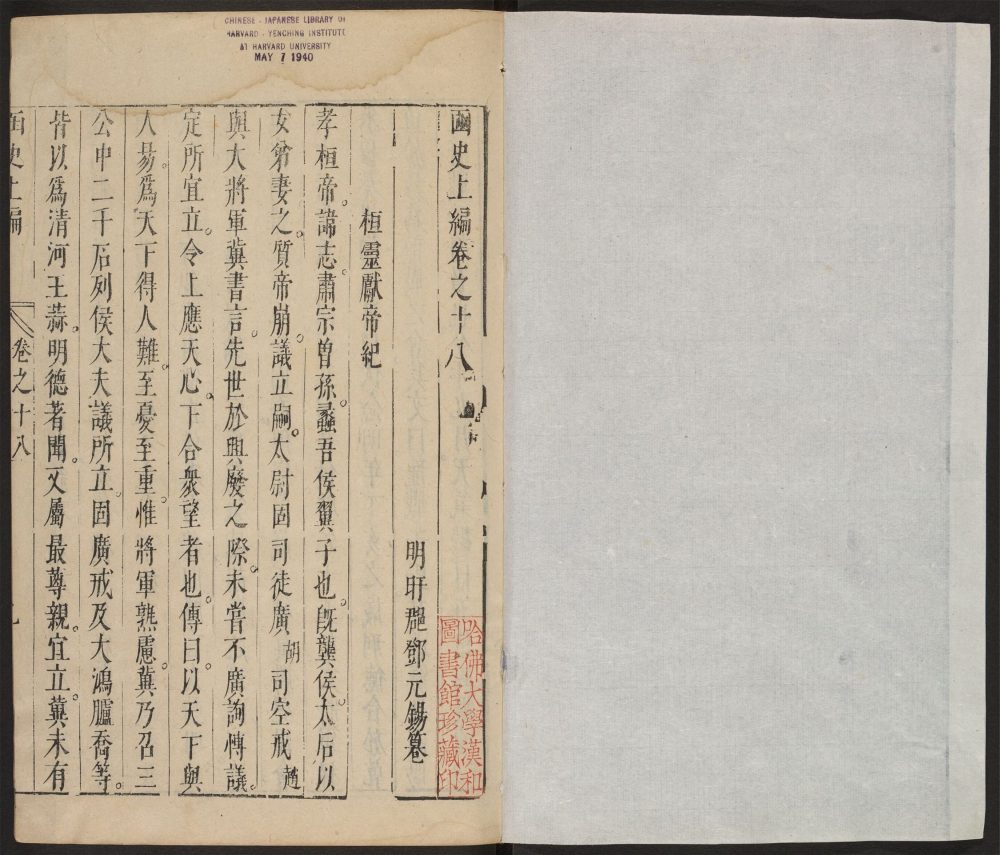 CHINESE - JAPANESE LIBRARY OF
HARVARD - YENCHING INSTITUTE
AT HARVARD UNIVERSITY
MAY 7 1940
函史上編卷之十八
哈佛大學漢和
圖書館珍藏印
明盱郡鄧元錫纂
桓靈獻帝紀
孝桓帝。諱志。肅宗曾孫。蠡吾侯翼子也。旣龔侯。太后以
女弟妻之。質帝崩。議立嗣。太尉固司徒廣胡司空戒趙
與大將軍冀書言。先世於興廢之際。未嘗不廣詢博議。
定所宜立。令上應天心。下合衆望者也。傳曰。以天下與
人易。爲天下得人難。至憂至重。惟將軍熟慮。冀乃召三
公中二千石列侯大夫議所立。固廣戒及大鴻臚喬等。
皆以爲清河王蒜。明德著聞。又屬最尊親。宜立。冀未有
函史上編
卷之十八